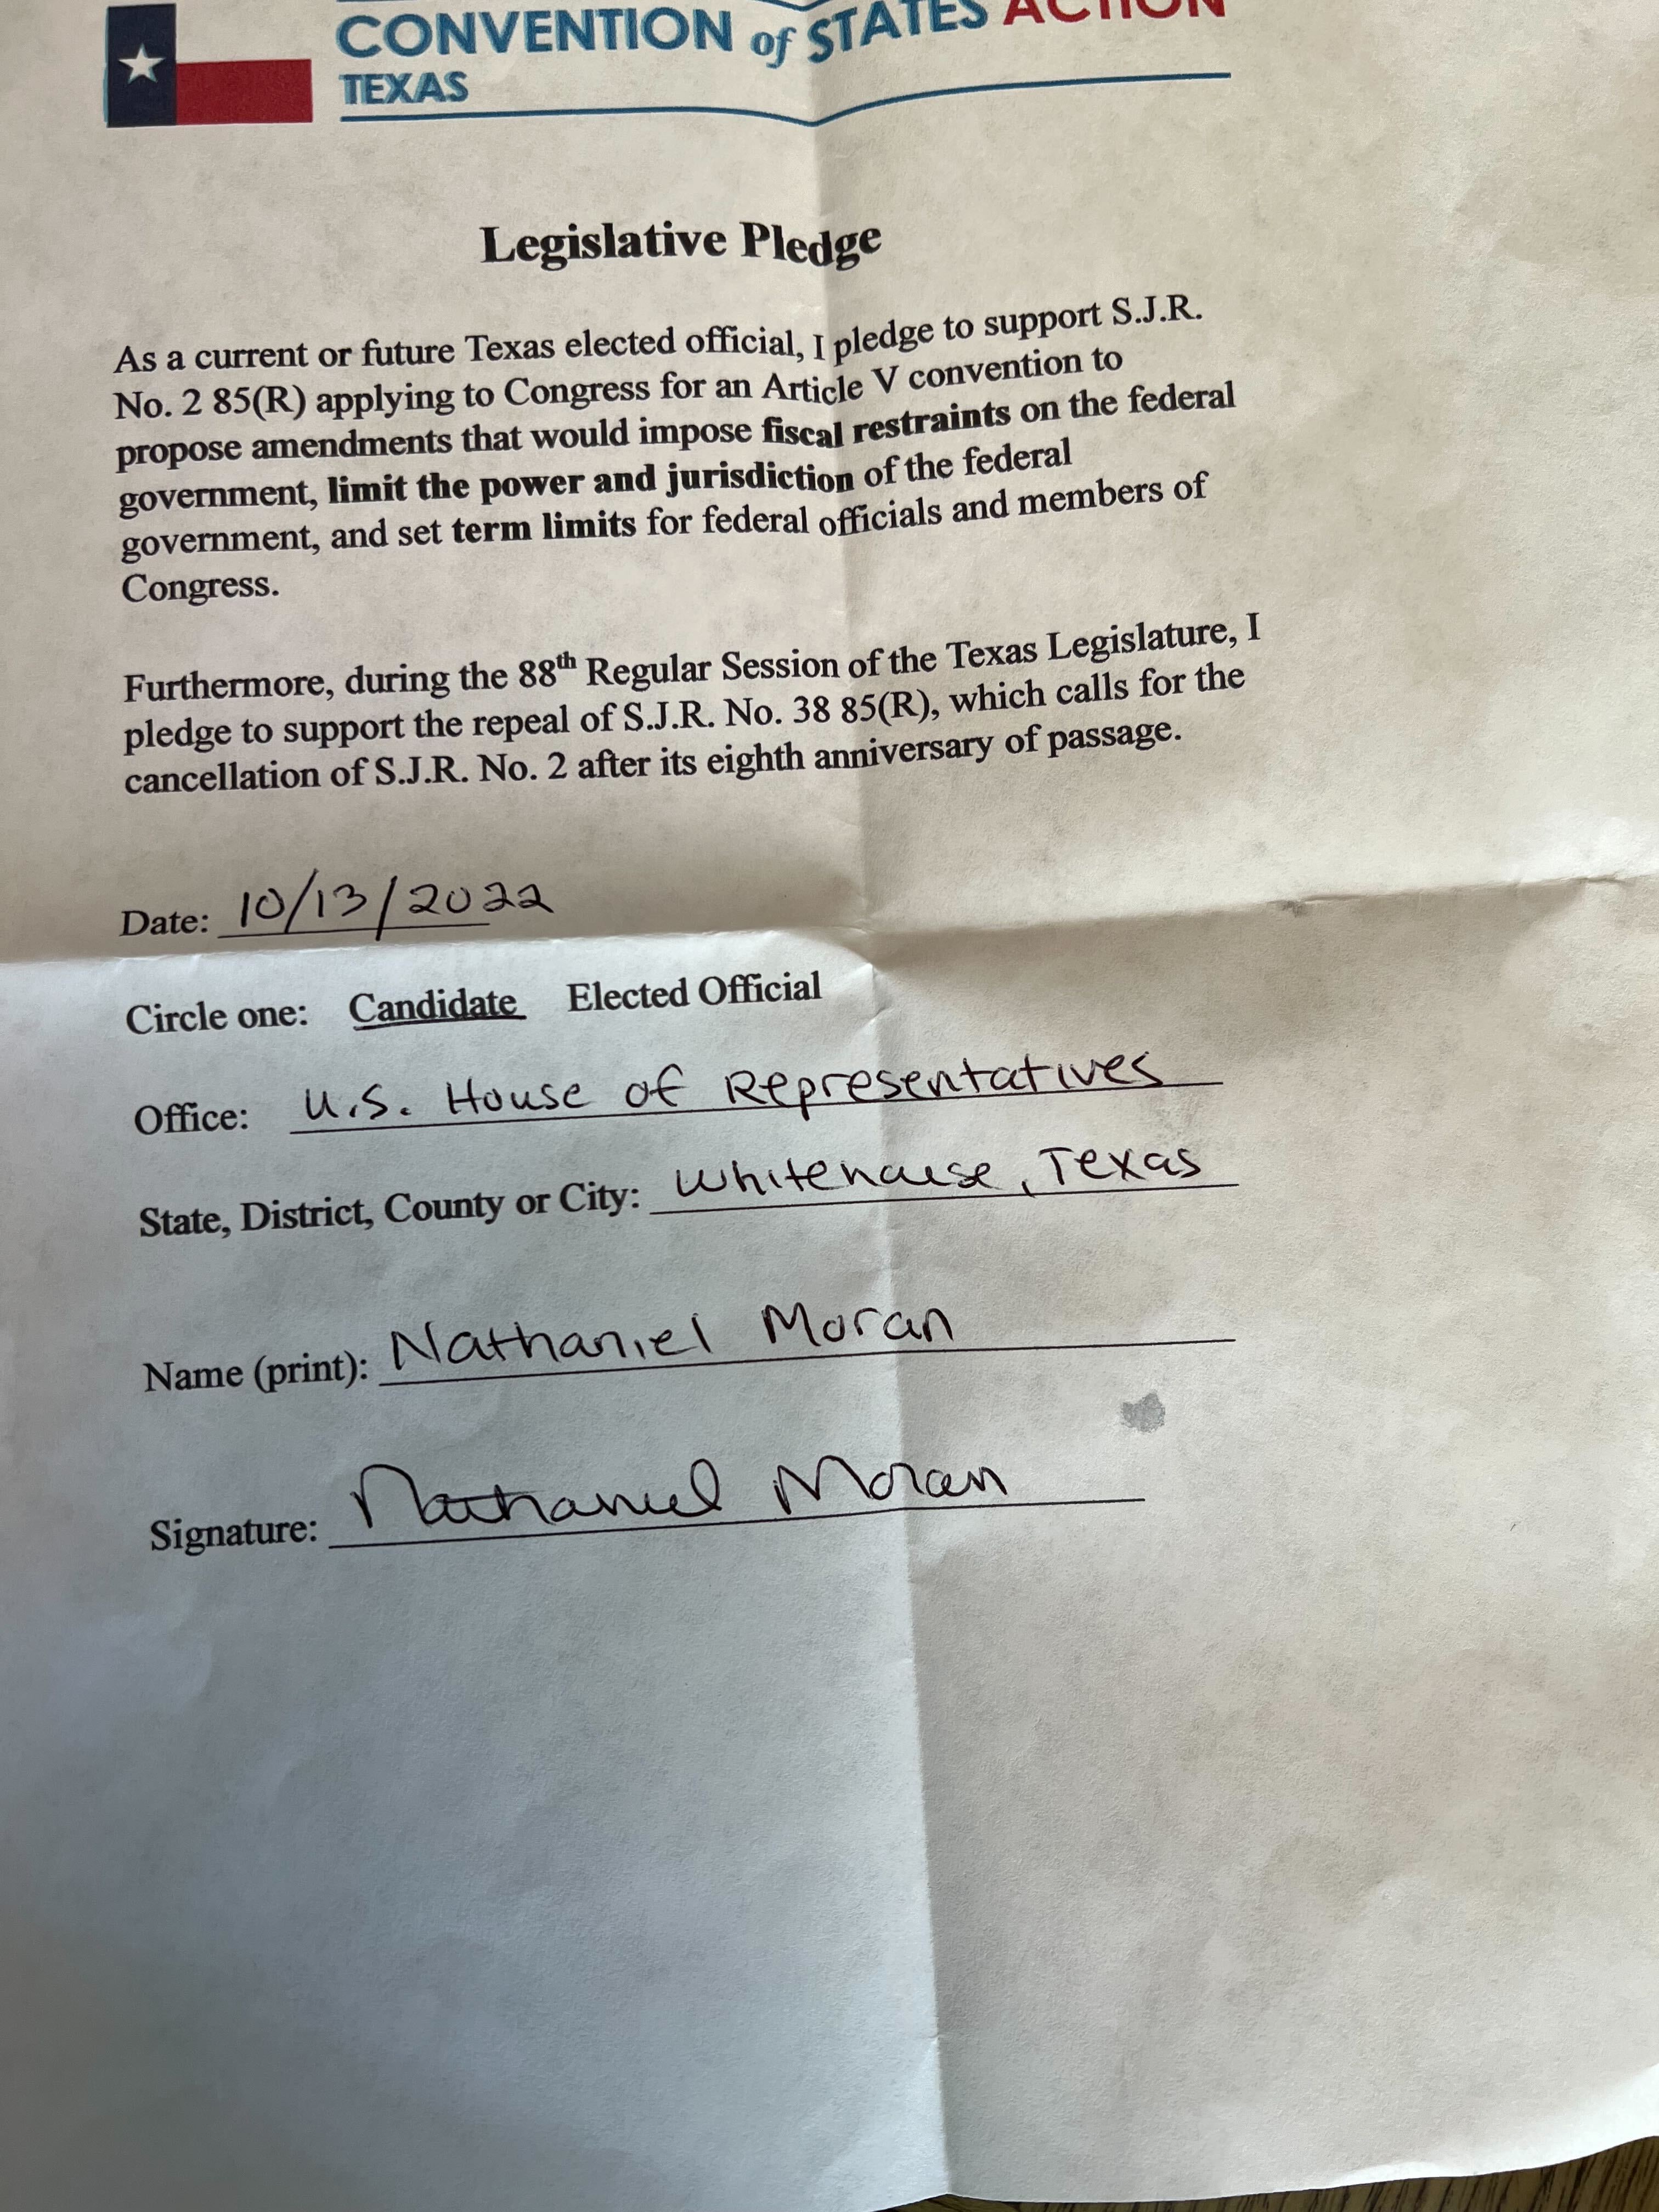 CONVENTION of STATES ACTION
TEXAS
Legislative Pledge
As a current or future Texas elected official, I pledge to support S.J.R.
No. 2 85(R) applying to Congress for an Article V convention to
propose amendments that would impose fiscal restraints on the federal
government, limit the power and jurisdiction of the federal
government, and set term limits for federal officials and members of
Congress.
Furthermore, during the 88th Regular Session of the Texas Legislature, I
pledge to support the repeal of S.J.R. No. 38 85(R), which calls for the
cancellation of S.J.R. No. 2 after its eighth anniversary of passage.
Date: 10/13/2022
Circle one: Candidate Elected Official
Office: U.S. House of Representatives
State, District, County or City: Whitehouse, Texas
Name (print): Nathaniel Moran
Signature: Nathaniel Moran